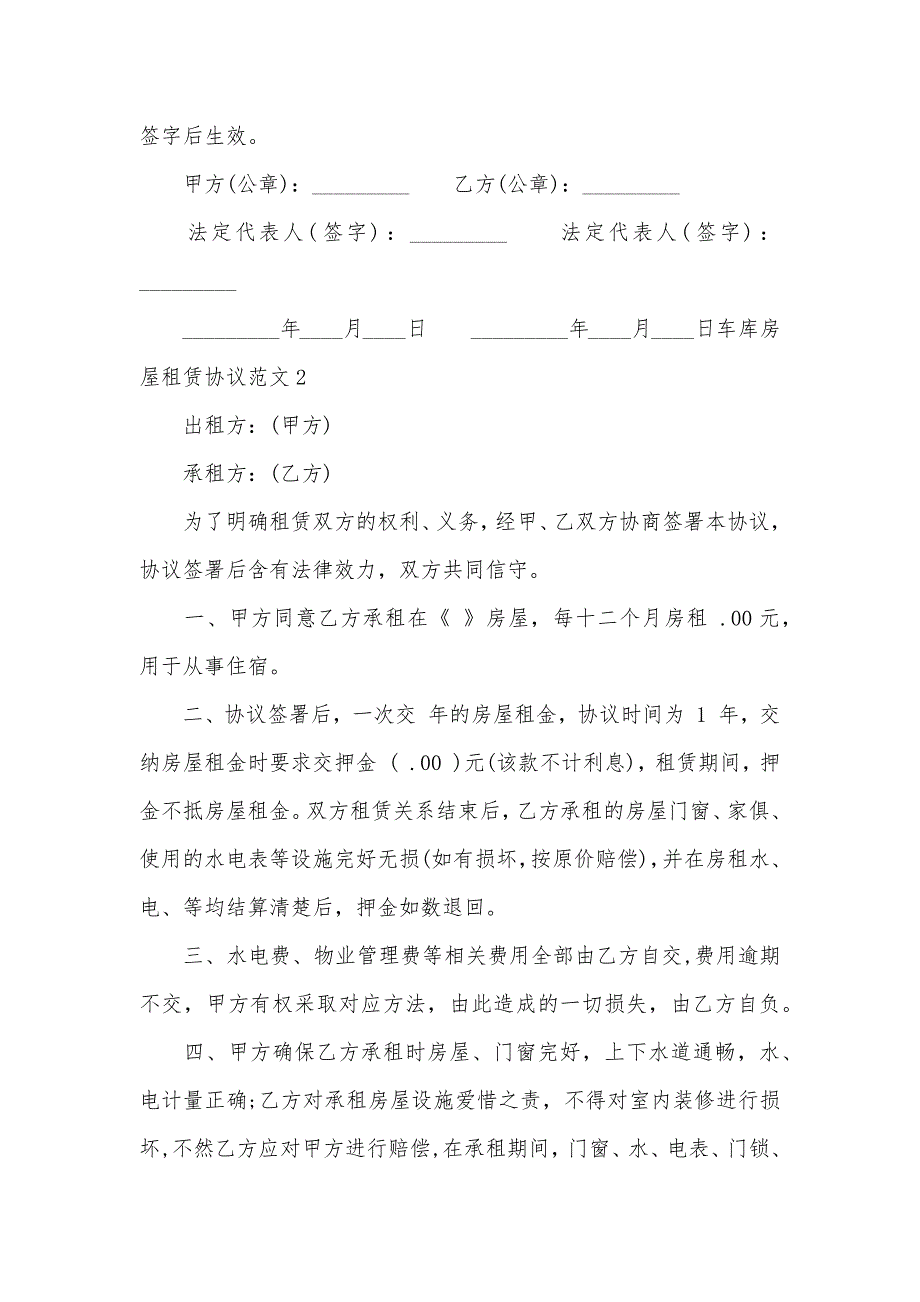 签字后生效。
甲方(公章)：_________　　乙方(公章)：_________
法定代表人(签字)：_________　　法定代表人(签字)：
_________
_________年____月____日　　_________年____月____日车库房
屋租赁协议范文2
出租方：(甲方)
承租方：(乙方)
为了明确租赁双方的权利、义务，经甲、乙双方协商签署本协议，
协议签署后含有法律效力，双方共同信守。
一、甲方同意乙方承租在《 》房屋，每十二个月房租 .00元，
用于从事住宿。
二、协议签署后，一次交 年的房屋租金，协议时间为 1 年，交
纳房屋租金时要求交押金 ( .00 )元(该款不计利息)，租赁期间，押
金不抵房屋租金。双方租赁关系结束后，乙方承租的房屋门窗、家俱、
使用的水电表等设施完好无损(如有损坏，按原价赔偿)，并在房租水、
电、等均结算清楚后，押金如数退回。
三、水电费、物业管理费等相关费用全部由乙方自交,费用逾期
不交，甲方有权采取对应方法，由此造成的一切损失，由乙方自负。
四、甲方确保乙方承租时房屋、门窗完好，上下水道通畅，水、
电计量正确;乙方对承租房屋设施爱惜之责，不得对室内装修进行损
坏,不然乙方应对甲方进行赔偿,在承租期间，门窗、水、电表、门锁、